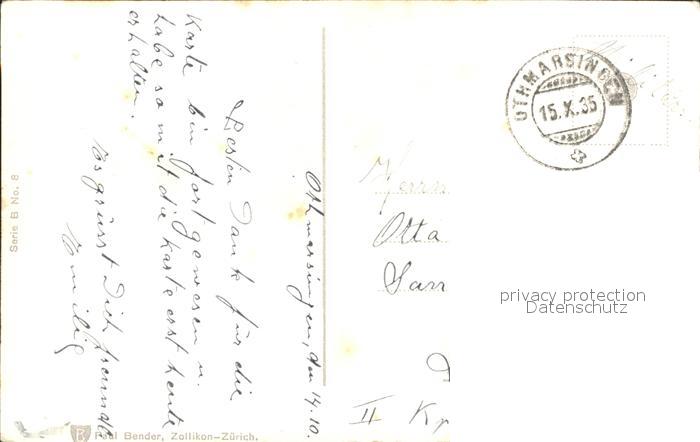 Othmarsingen, den 14.10.
Besten Dank für die
Karte bin fort gewesen u.
habe somit die Karte erst heute
erhalten.
Es grüsst Dich freundl.
Herrn
Otta
Sarr
II Kr
OTHMARSINGEN
15.X.35
privacy protection
Datenschutz
Serie B No. 8
Paul Bender, Zollikon-Zürich.